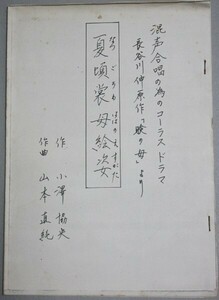 混声合唱の為のコーラス ドラマ
長谷川伸原作「瞼の母」より
なつ ごろも ははのえすがた
夏頃裳母絵姿
作 小澤
作曲 山本直純